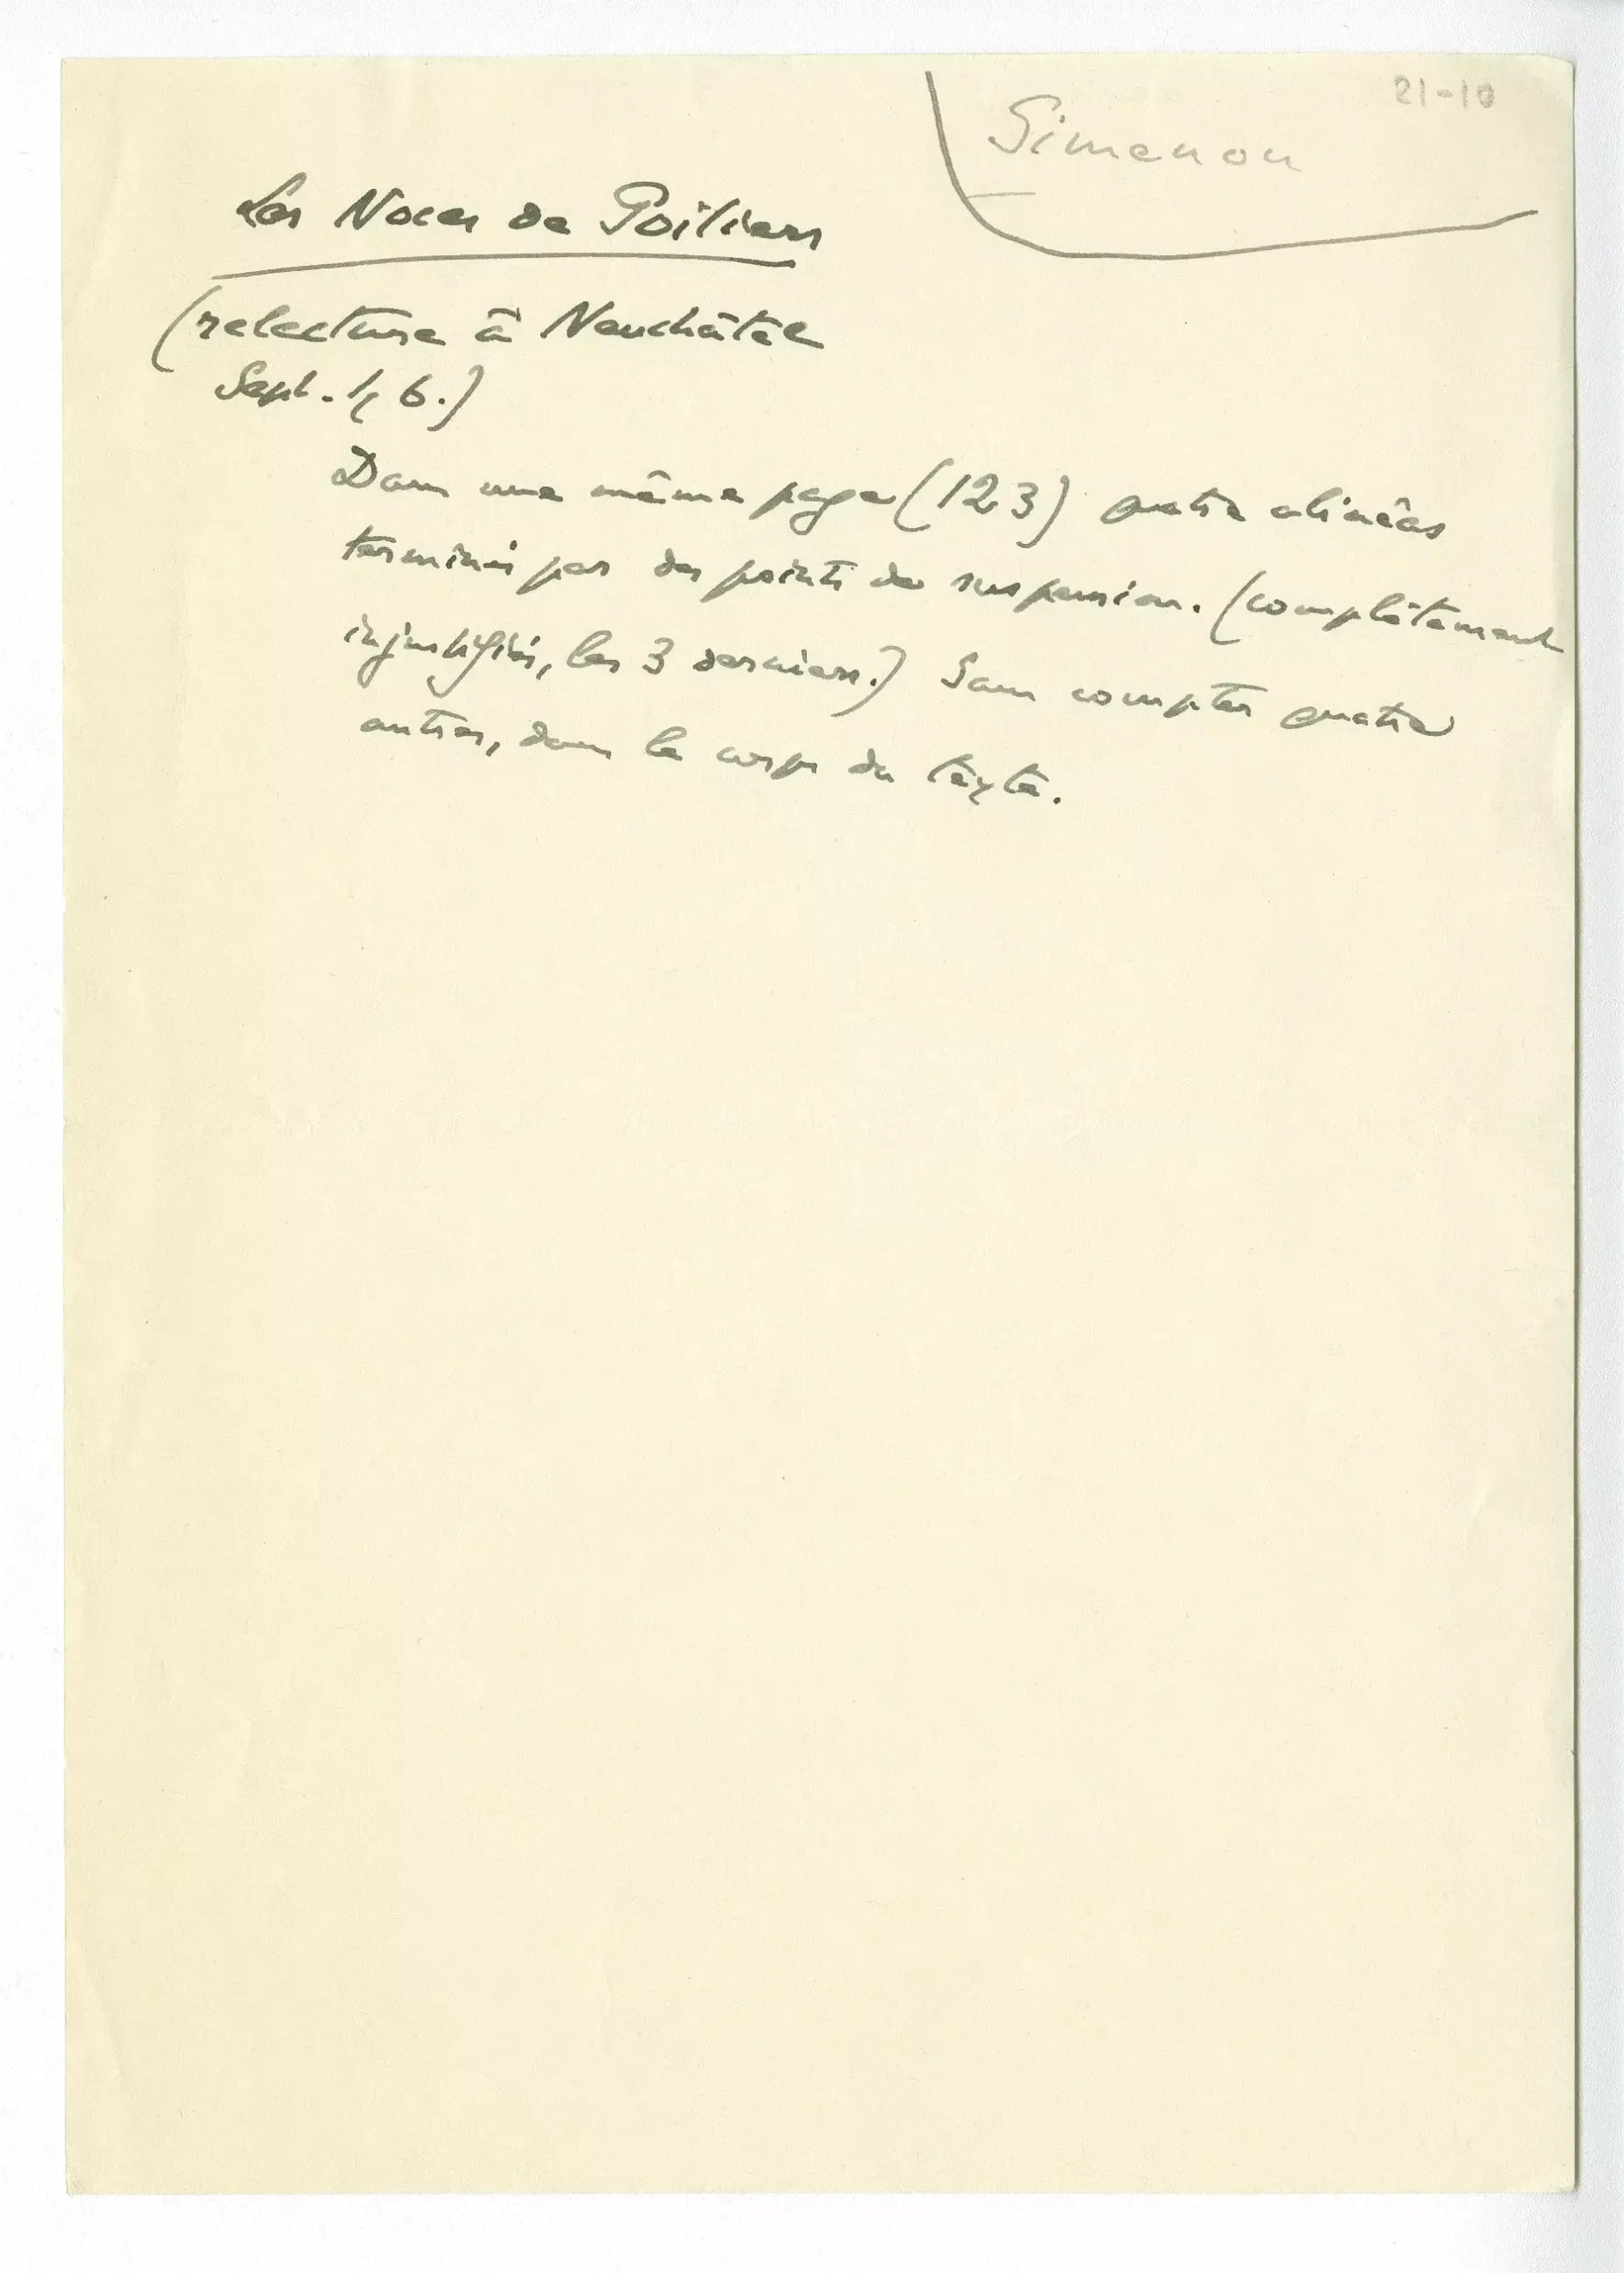 21-10
Simenon
Les Noces de Poitiers
(relecture à Neuchâtel
Sept. 6.)
Dans une même page (123) quatre alinéas
terminés par des points de suspension. (complètement
injustifiés, les 3 derniers.) Sans compter quatre
autres, dans le corps du texte.